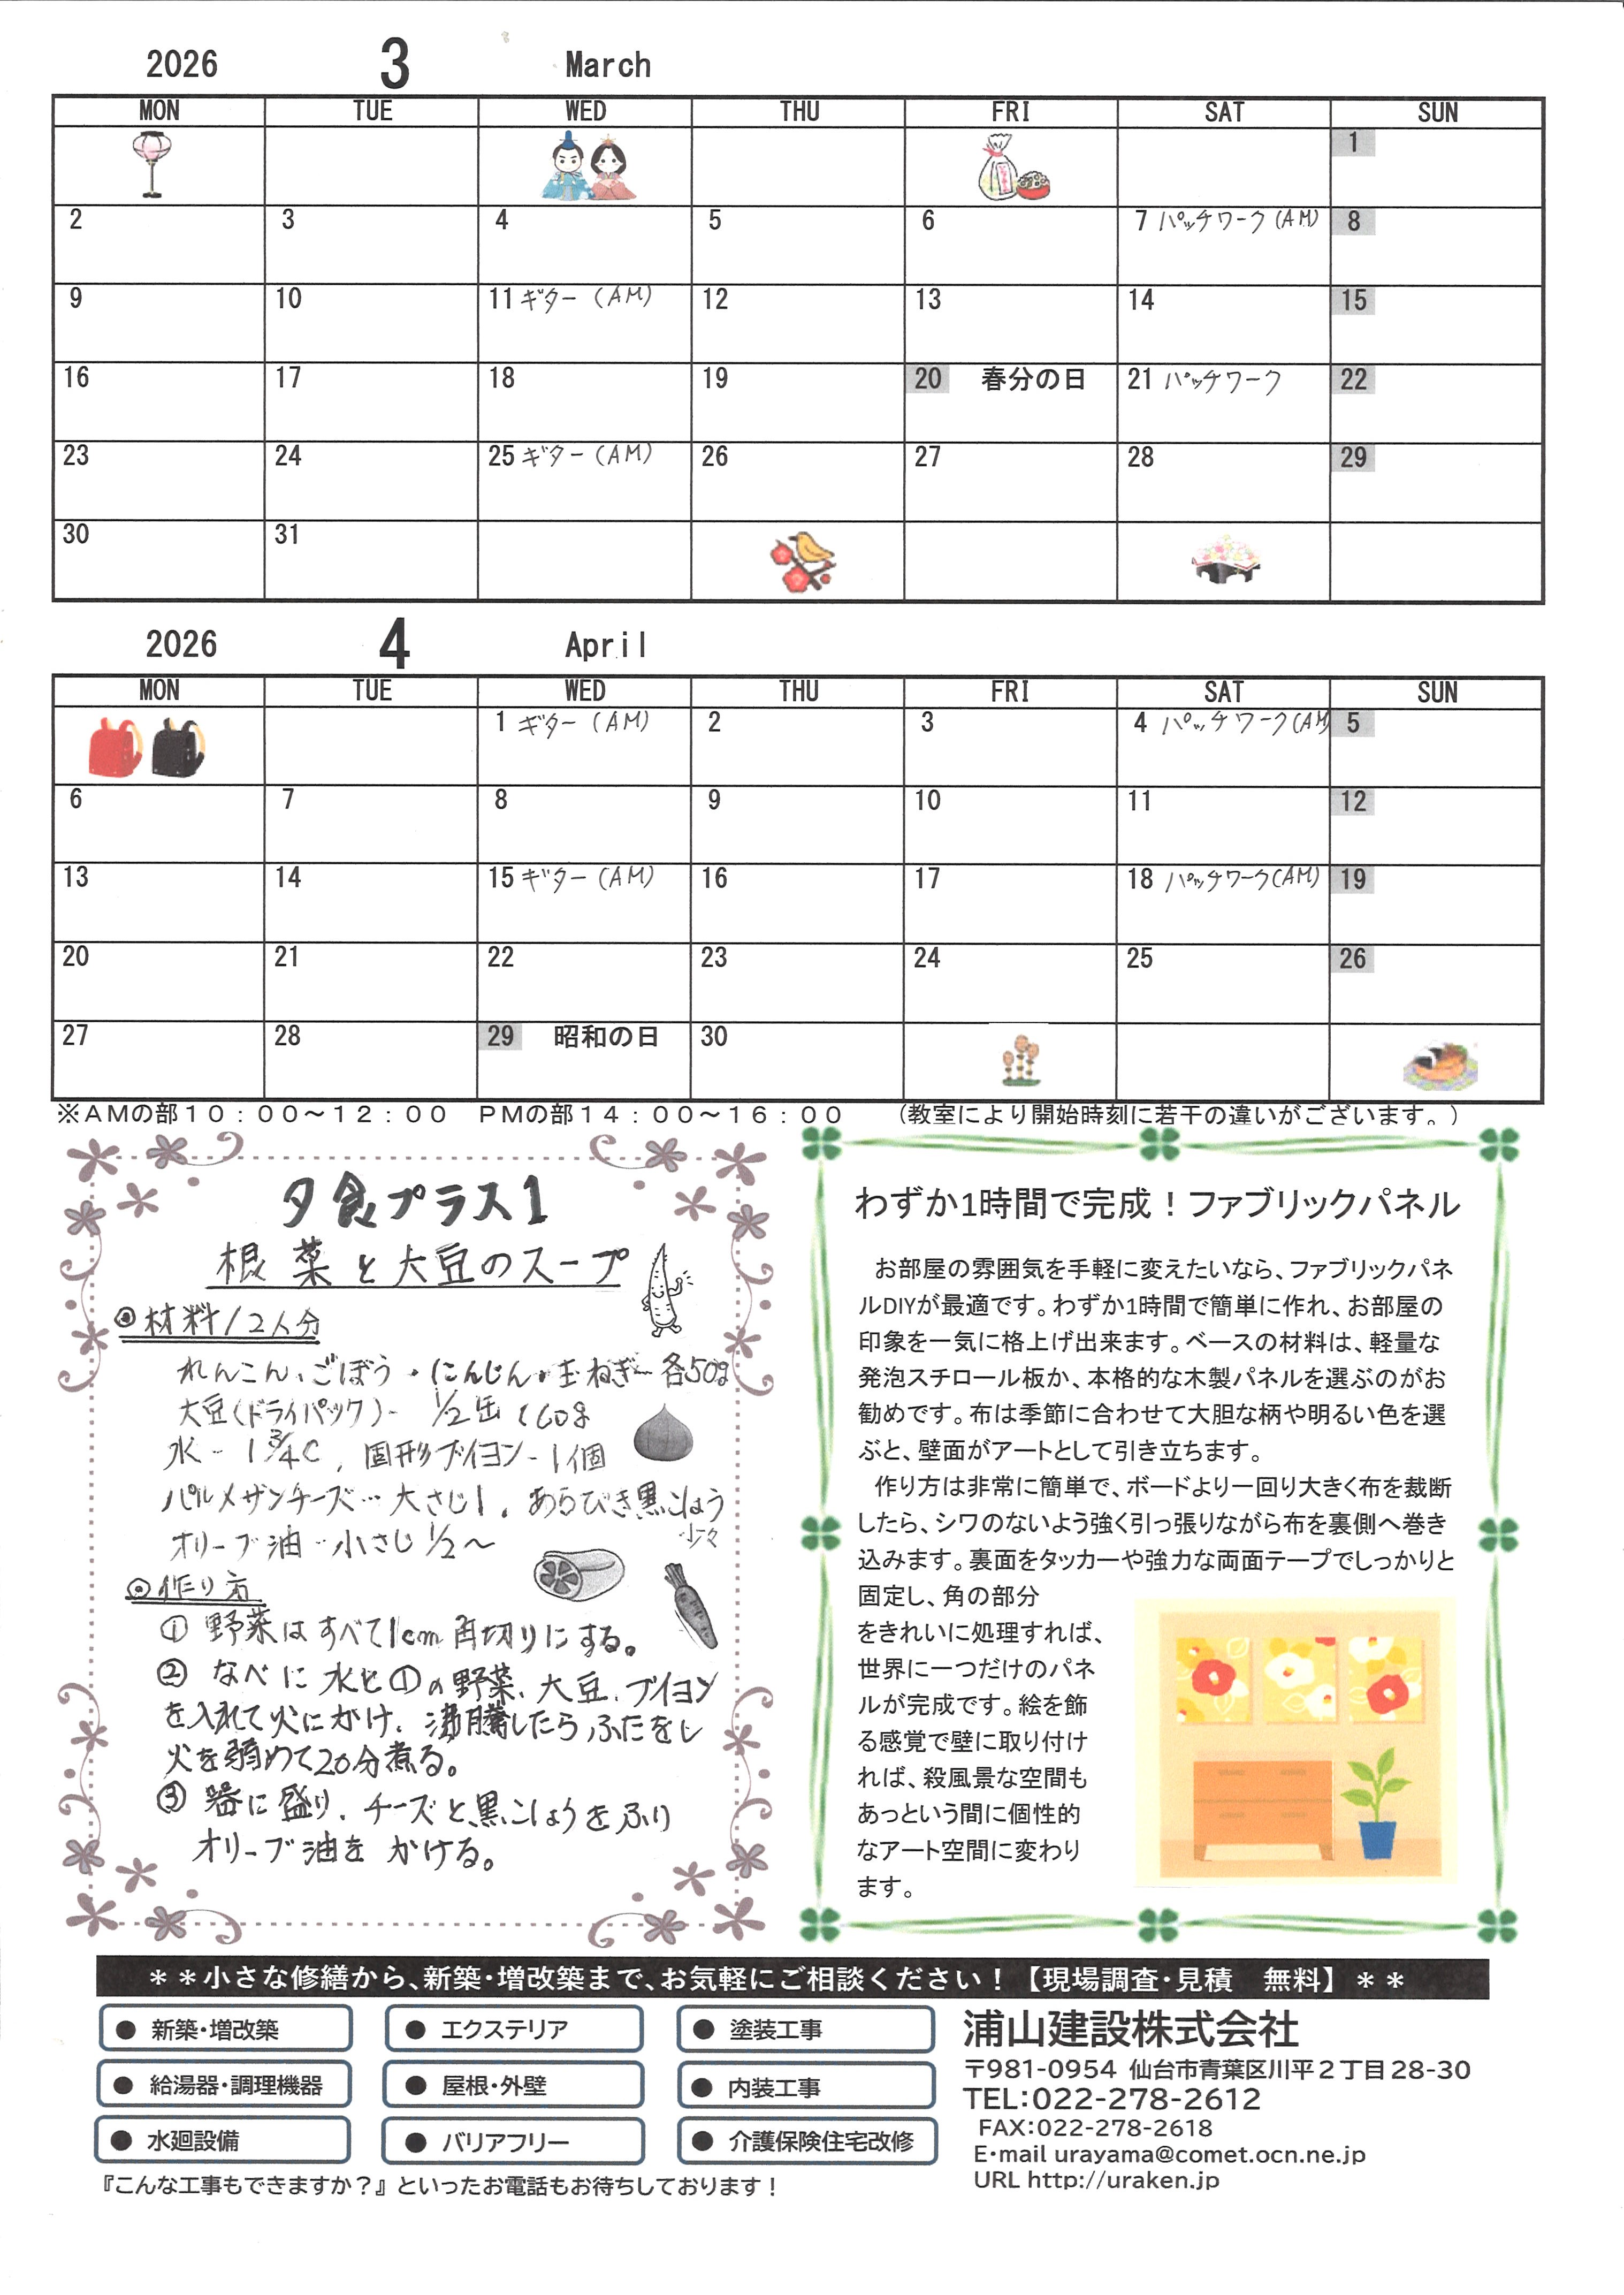 2026 3 March
MON TUE WED THU FRI SAT SUN
1
2 3 4 5 6 7 パッチワーク(AM) 8
9 10 11 ギター (AM) 12 13 14 15
16 17 18 19 20 春分の日 21 パッチワーク 22
23 24 25 ギター (AM) 26 27 28 29
30 31
2026 4 April
MON TUE WED THU FRI SAT SUN
1 ギター (AM) 2 3 4 パッチワーク(AM) 5
6 7 8 9 10 11 12
13 14 15 ギター (AM) 16 17 18 パッチワーク(AM) 19
20 21 22 23 24 25 26
27 28 29 昭和の日 30
※AMの部10:00～12:00 PMの部14:00～16:00 (教室により開始時刻に若干の違いがございます。)
夕食プラス1
根菜と大豆のスープ
◎材料/2人分
れんこん、ごぼう・にんじん・玉ねぎ… 各50g
大豆(ドライパック)- 1/2缶 (60g
水 - 1 3/4C , 固形ブイヨン - 1個
パルメザンチーズ… 大さじ1. あらびき黒こしょう
少々
オリーブ油 … 小さじ 1/2～
◎作り方
① 野菜はすべて1cm角切りにする。
② なべに水と①の野菜、大豆、ブイヨン
を入れて火にかけ、沸騰したら、ふたをし
火を弱めて20分煮る。
③ 器に盛り、チーズと黒こしょうをふり
オリーブ油を かける。
わずか1時間で完成！ファブリックパネル
お部屋の雰囲気を手軽に変えたいなら、ファブリックパネ
ルDIYが最適です。わずか1時間で簡単に作れ、お部屋の
印象を一気に格上げ出来ます。ベースの材料は、軽量な
発泡スチロール板か、本格的な木製パネルを選ぶのがお
勧めです。布は季節に合わせて大胆な柄や明るい色を選
ぶと、壁面がアートとして引き立ちます。
作り方は非常に簡単で、ボードより一回り大きく布を裁断
したら、シワのないよう強く引っ張りながら布を裏側へ巻き
込みます。裏面をタッカーや強力な両面テープでしっかりと
固定し、角の部分
をきれいに処理すれば、
世界に一つだけのパネ
ルが完成です。絵を飾
る感覚で壁に取り付け
れば、殺風景な空間も
あっという間に個性的
なアート空間に変わり
ます。
＊＊小さな修繕から、新築・増改築まで、お気軽にご相談ください！【現場調査・見積 無料】＊＊
● 新築・増改築 ● エクステリア ● 塗装工事
● 給湯器・調理機器 ● 屋根・外壁 ● 内装工事
● 水廻設備 ● バリアフリー ● 介護保険住宅改修
『こんな工事もできますか？』といったお電話もお待ちしております！
浦山建設株式会社
〒981-0954 仙台市青葉区川平２丁目28-30
TEL:022-278-2612
FAX:022-278-2618
E・mail urayama@comet.ocn.ne.jp
URL http://uraken.jp